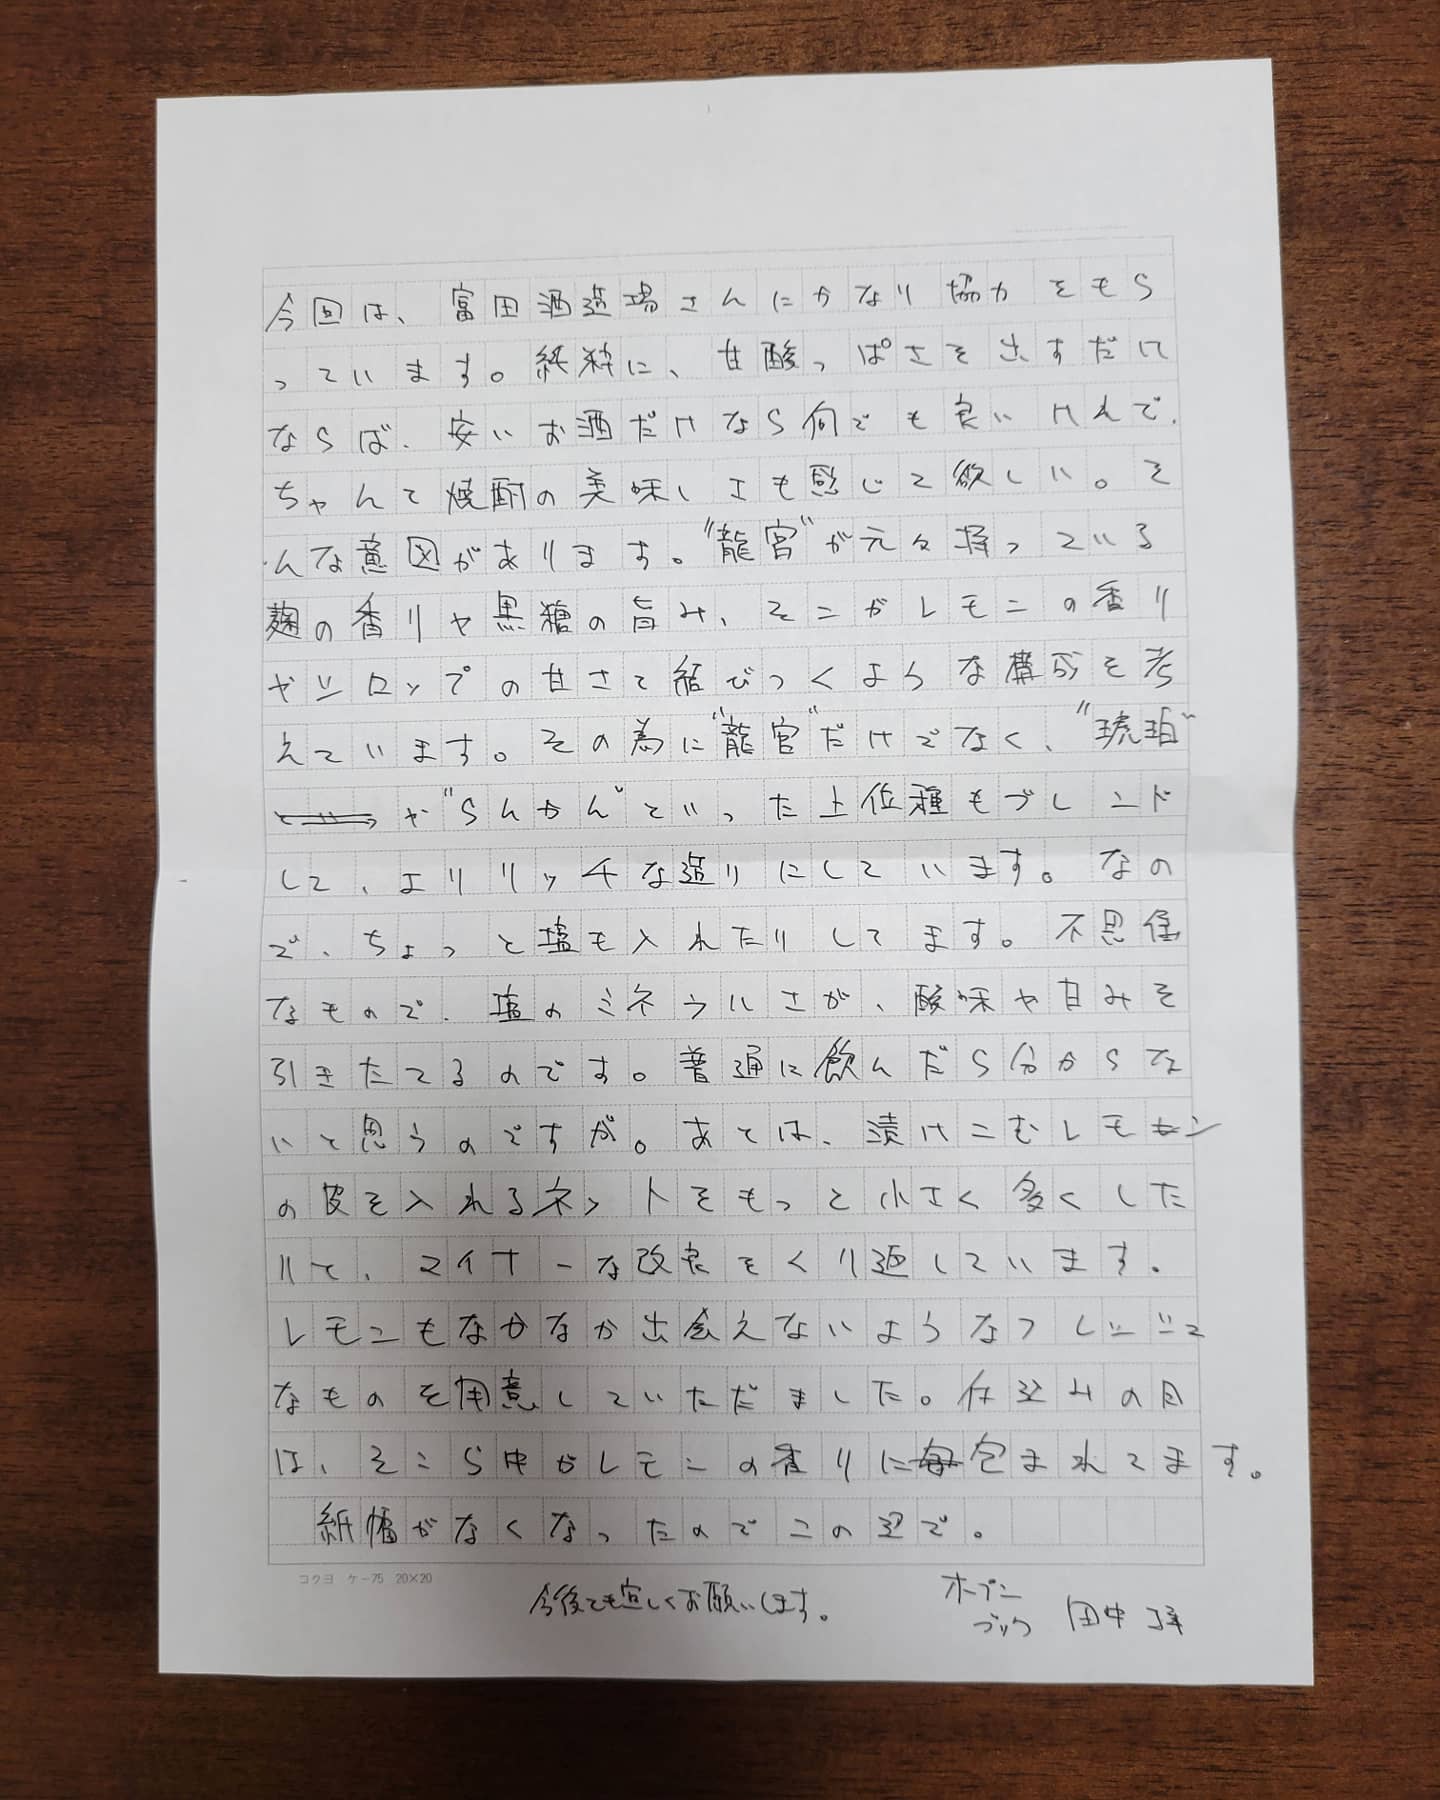 今回は、富田酒造場さんにかなり協力をもら
っています。純粋に、甘酸っぱさを出すだけ
ならば、安いお酒だけなら何でも良いけれど、
ちゃんと焼酎の美味しさも感じて欲しい。そ
んな意図があります。"龍宮"が元々持っている
麹の香りや黒糖の旨み、そこがレモンの香り
やシロップの甘さと結びつくような構成を考
えています。その為に"龍宮"だけでなく、"琥珀"
や"らんかん"といった上位種もブレンド
して、よりリッチな造りにしています。なの
で、ちょっと塩も入れたりしてます。不思議
なもので、塩のミネラルさが、酸味や甘みを
引きたてるのです。普通に飲んだら分からな
いと思うのですが。あとは、漬けこむレモン
の皮を入れるネットをもっと小さく多くした
りと、マイナーな改良をくり返しています。
レモンもなかなか出会えないようなフレッシュ
なものを用意していただきました。仕込みの日
は、そこら中がレモンの香りに包まれてます。
紙幅がなくなったのでこの辺で。
コクヨ ケ-75 20×20
今後とも宜しくお願いします。
オープン
ブック 田中